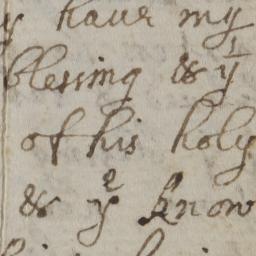 y haue my
blessing & yt
of his holy
& ye know